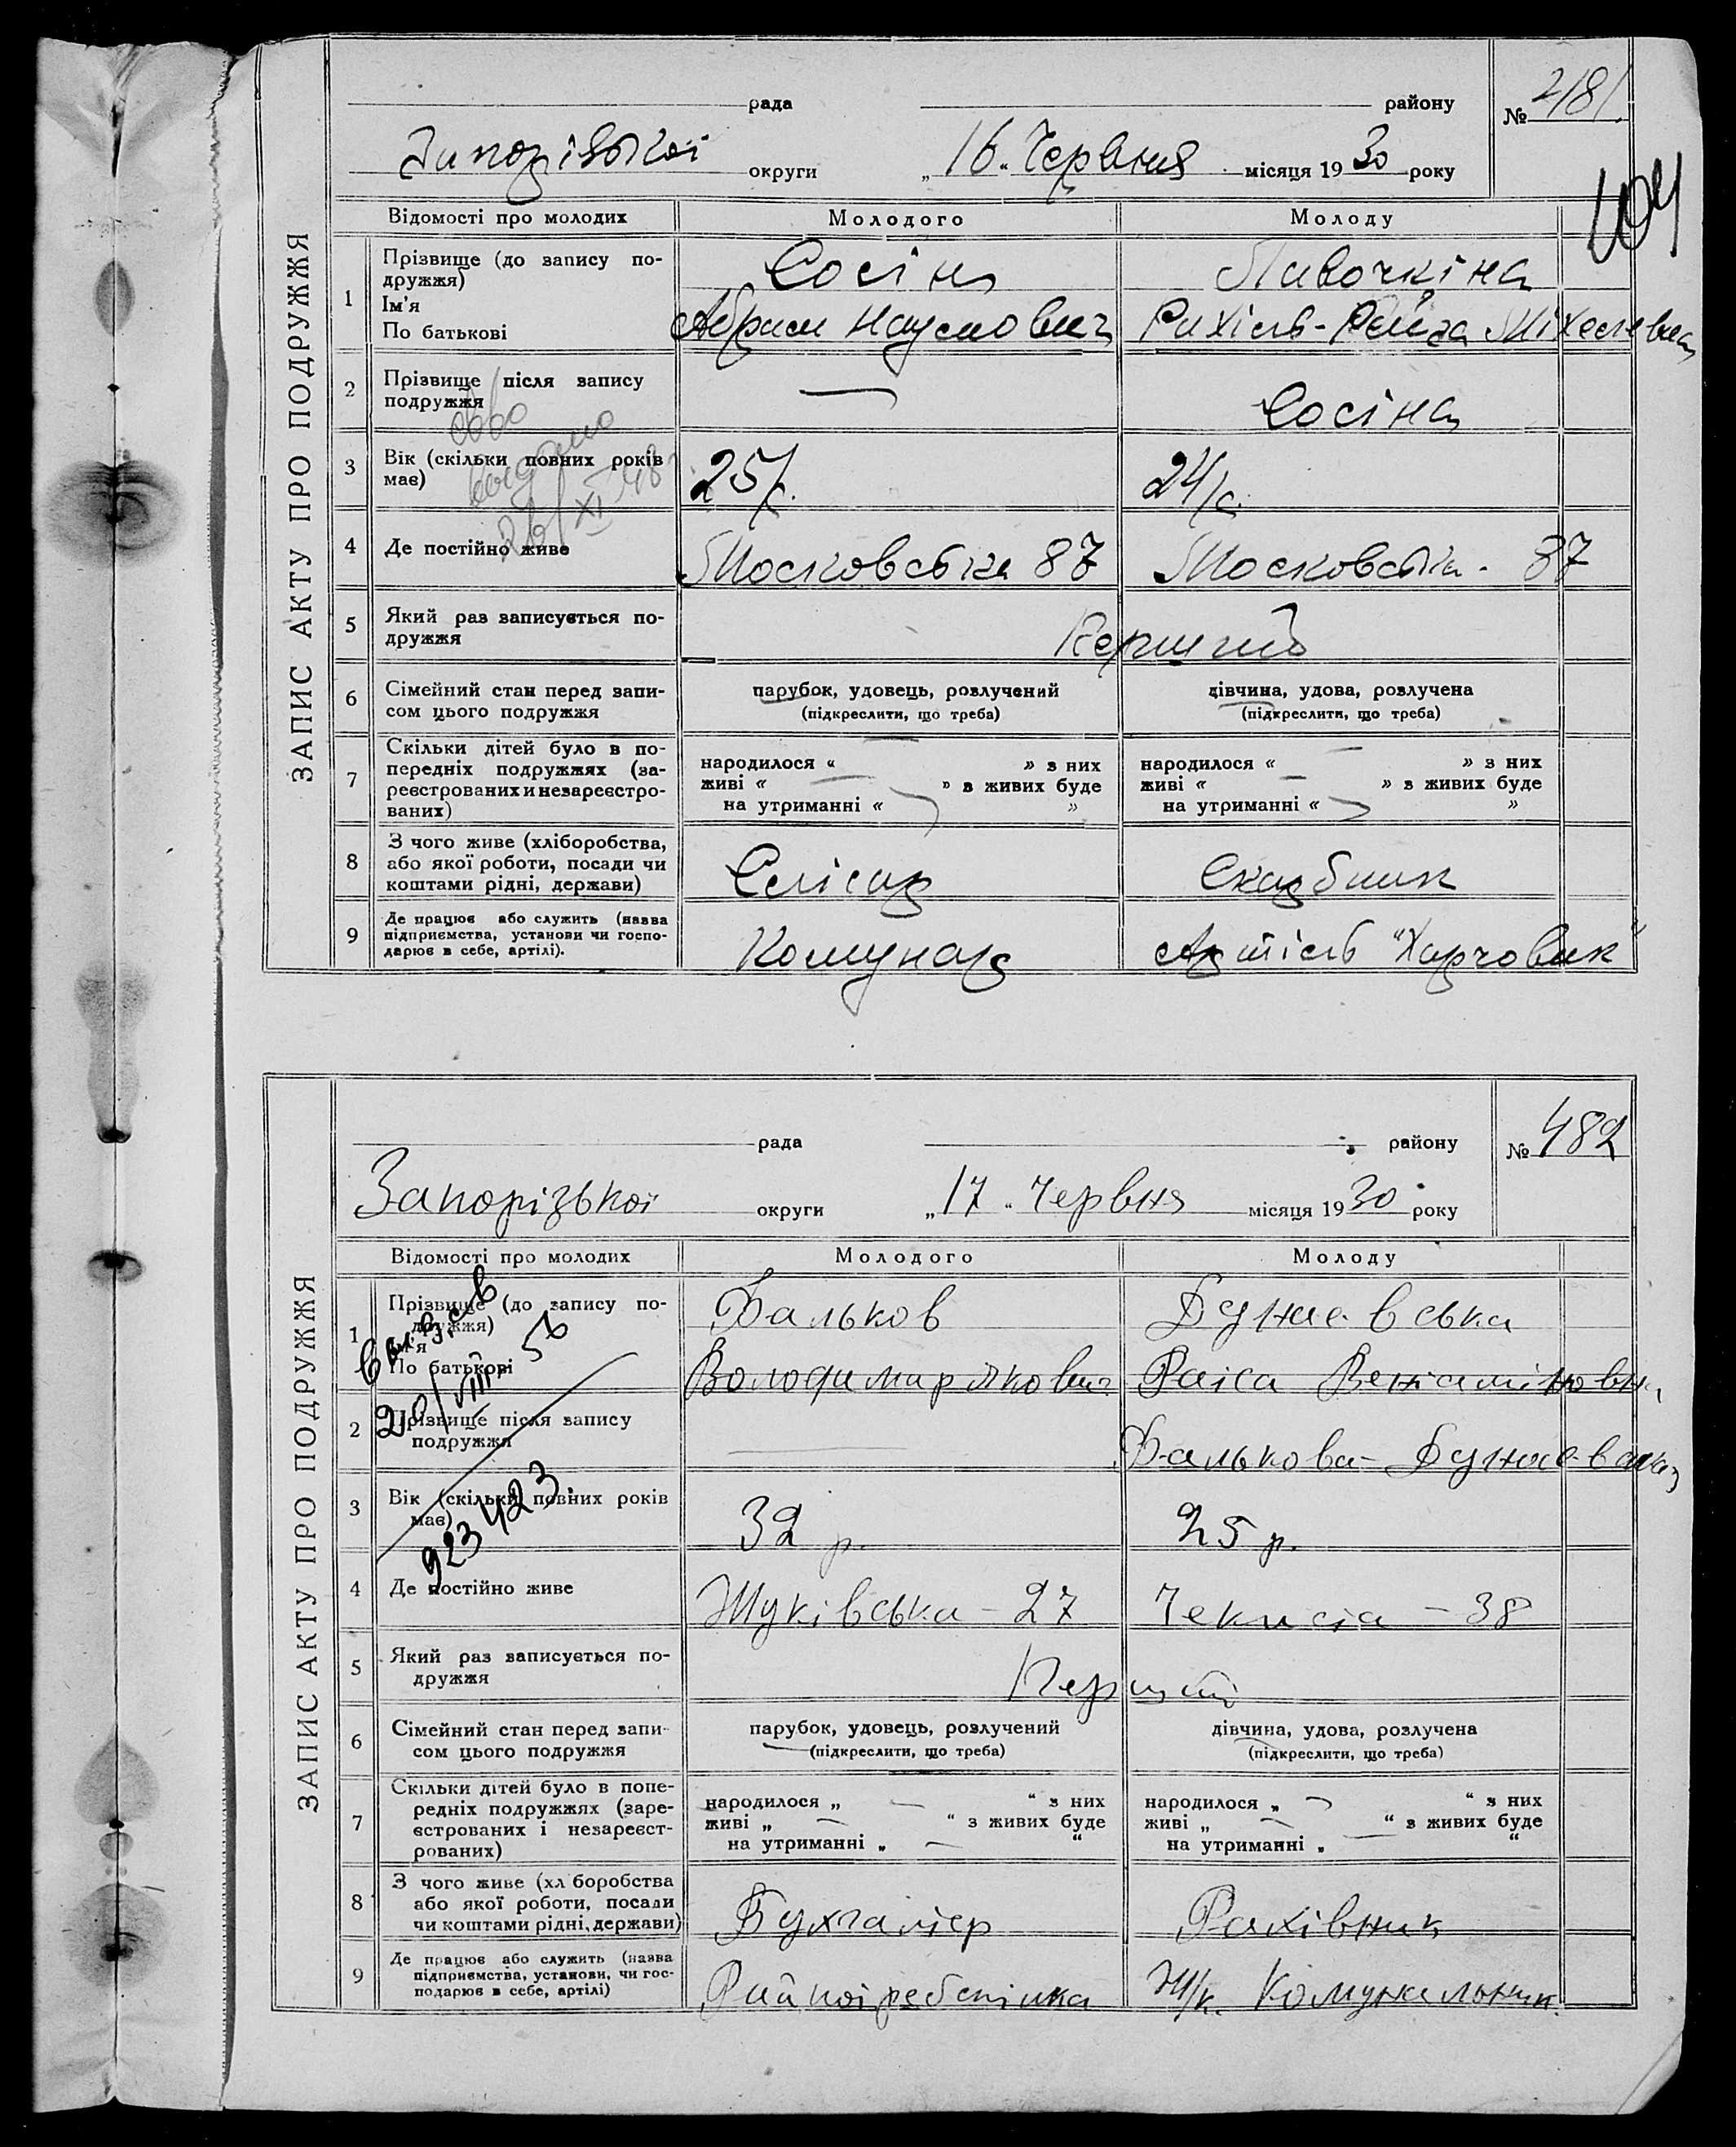 ЗАПИС АКТУ ПРО ПОДРУЖЖЯ
рада району № 481
Запорізької округи „16“ Червня місяця 1930 року
104
Відомості про молодих Молодого Молоду
1 Прізвище (до запису подружжя) Сосін Лавочкіна
Ім'я
По батькові Абрам Наумович Рихіль-Рейза Міхелевна
2 Прізвище після запису подружжя — Сосіна
св-во
видано
26/XI-48
3 Вік (скільки повних років має) 25 р. 24 р.
4 Де постійно живе Московська 87 Московська - 87
5 Який раз записується подружжя Перший
6 Сімейний стан перед записом цього подружжя парубок, удовець, розлучений дівчина, удова, розлучена
(підкреслити, що треба) (підкреслити, що треба)
7 Скільки дітей було в попередніх подружжях (зареєстрованих и незареєстрованих)
народилося « — » з них народилося « — » з них
живі « — » в живих буде живі « — » з живих буде
на утриманні « » на утриманні « »
8 З чого живе (хліборобства, або якої роботи, посади чи коштами рідні, держави) Слюсар Скарбник
9 Де працює або служить (назва підприємства, установи чи господарює в себе, артілі). Комунар Артіль "Харчовик"
ЗАПИС АКТУ ПРО ПОДРУЖЖЯ
рада району № 482
Запорізької округи „17“ Червня місяця 1930 року
Відомості про молодих Молодого Молоду
1 Прізвище (до запису подружжя) Фальков Дунаєвська
Ім'я
По батькові Володимир Якович Раіса Веніаміновна
2 Прізвище після запису подружжя — Фалькова-Дунаєвська
20/VIII 56
923423.
3 Вік (скільки повних років має) 32 р. 25 р.
4 Де постійно живе Жуківська - 27 Чекиста - 38
5 Який раз записується подружжя Перший
6 Сімейний стан перед записом цього подружжя парубок, удовець, розлучений дівчина, удова, розлучена
(підкреслити, що треба) (підкреслити, що треба)
7 Скільки дітей було в попередніх подружжях (зареєстрованих і незареєстрованих)
народилося „ — “ з них народилося „ — “ з них
живі „ — “ з живих буде живі „ — “ з живих буде
на утриманні „ — “ на утриманні „ — “
8 З чого живе (хл боробства або якої роботи, посади чи коштами рідні, держави) Бухгалтер Рахівник
9 Де працює або служить (назва підприємства, установи, чи господарює в себе, артілі) Райпотребспілка Ж/к. Комунальник.